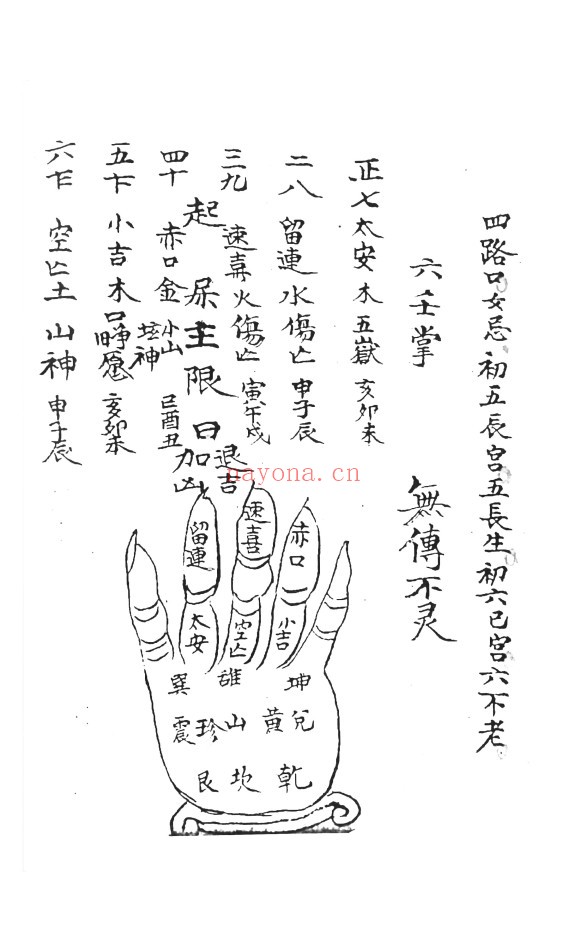 四路口女忌初五長宮五長生初六已宮六不老
六壬掌
無傳不灵
正七太安木五嶽亥卯未
二八留連水傷亡申子辰
三九速喜火傷亡寅午戌
起 主限日
退吉
加凶
四十赤口金小山 神巳酉丑
五 小吉木口 愿亥卯未
六 空亡土山神申子辰
留連
速喜
赤口
太安
空亡
小吉
巽 坤
震 山黄兌
艮坎乾
nayona.cn